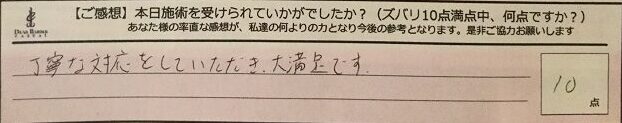 【ご感想】本日施術を受けられていかがでしたか？（ズバリ10点満点中、何点ですか？）
あなた様の率直な感想が、私達の何よりの力となり今後の参考となります。是非ご協力お願いします
丁寧な対応をしていただき、大満足です。
10
点